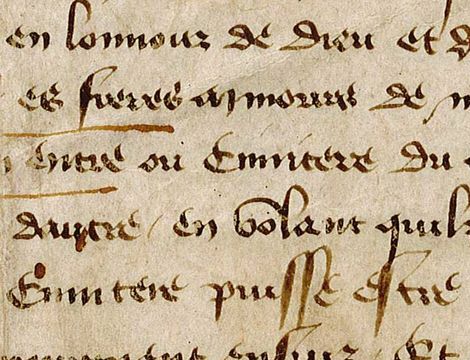 en lonnour de dieu et d
es freres mmours de m
entre ou Cimitere du
dautre / en volant quil
Cimitere puisse estre